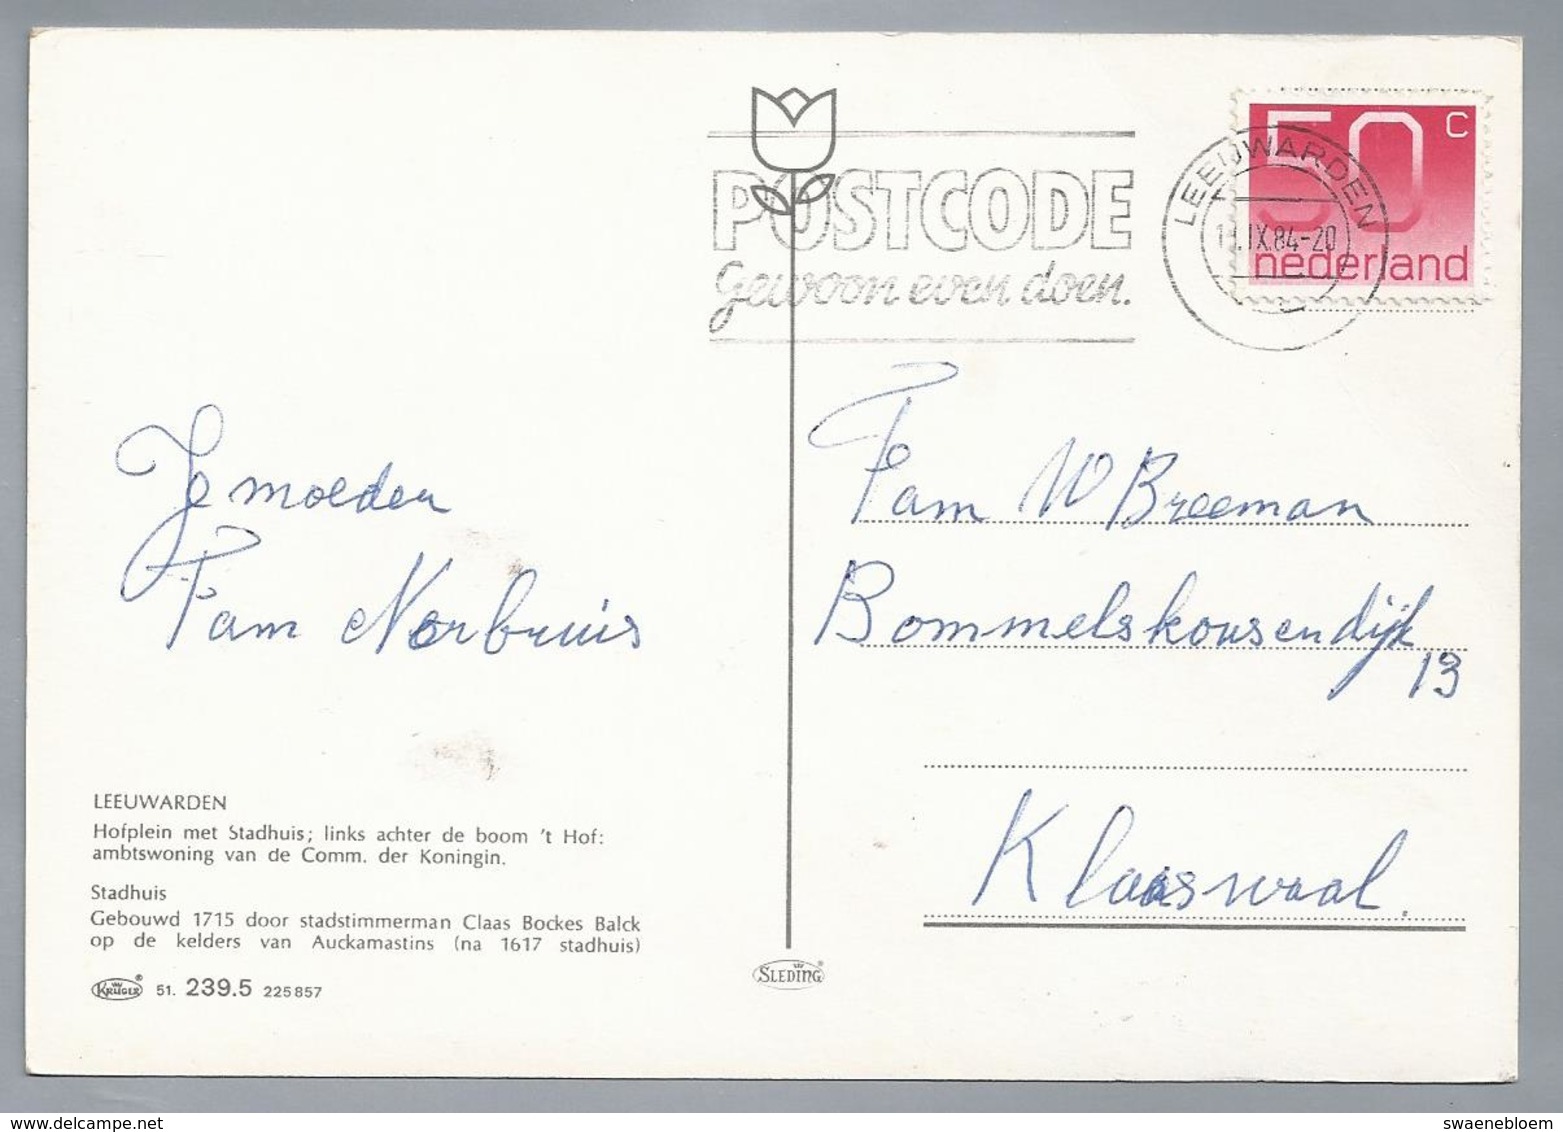 50 C
nederland
LEEUWARDEN
IX.84-20
POSTCODE
gewoon even doen.
Je moeder
Fam Norbruis
Fam W Breeman
Bommelskousendijk
13
Klaaswaal.
LEEUWARDEN
Hofplein met Stadhuis; links achter de boom 't Hof:
ambtswoning van de Comm. der Koningin.
Stadhuis
Gebouwd 1715 door stadstimmerman Claas Bockes Balck
op de kelders van Auckamastins (na 1617 stadhuis)
KRÜGER ® 51. 239.5 225857
SLEDING ®
www.delcampe.net
swaenebloem